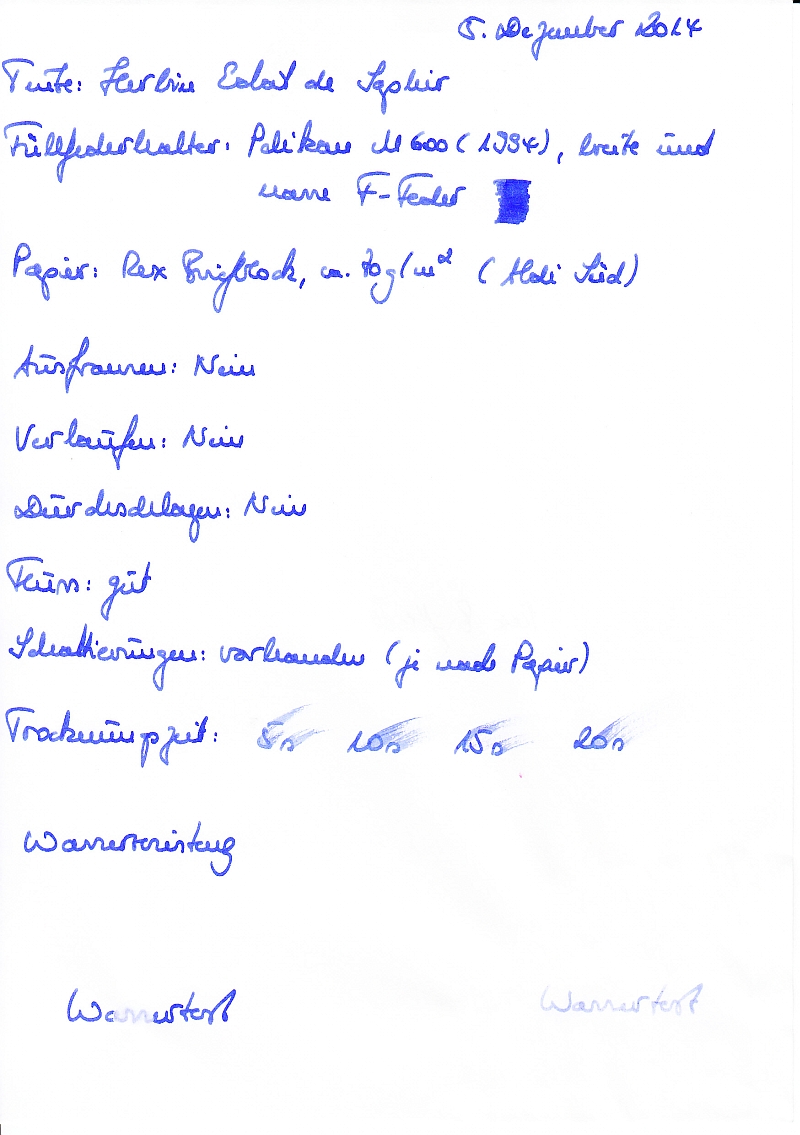 5. Dezember 2014
Tinte: Herbin Eclat de Saphir
Füllfederhalter: Pelikan M 600 (1994), breite und
nasse F-Feder
Papier: Rex Briefblock, ca. 70 g/m²  (Aldi Süd)
Ausfransen: Nein
Verlaufen: Nein
Durchschlagen: Nein
Fluss: gut
Schattierungen: vorhanden (je nach Papier)
Trocknungszeit: 5s 10s 15s 20s
Wasserfestigkeit
Wassertest Wassertest